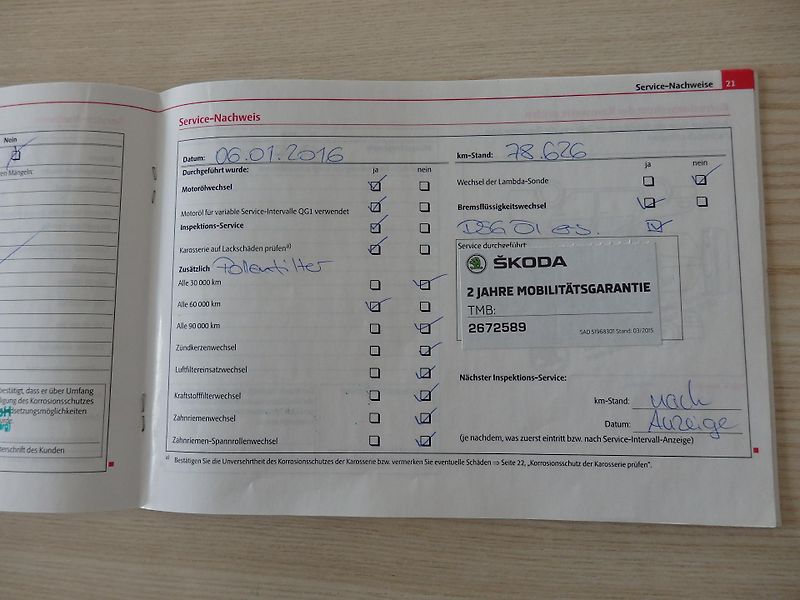 Service-Nachweise 21
Nein
en Mängeln:
Service-Nachweis
Datum: 06.01.2016
km-Stand: 78.626
Durchgeführt wurde: ja nein
ja nein
Motorölwechsel
Wechsel der Lambda-Sonde
Motoröl für variable Service-Intervalle QG1 verwendet
Bremsflüssigkeitswechsel
Inspektions-Service
DSG Öl ers.
Karosserie auf Lackschäden prüfen a)
Service durchgeführt:
Zusätzlich Pollenfilter
Alle 30 000 km
Alle 60 000 km
Alle 90 000 km
Zündkerzenwechsel
Luftfiltereinsatzwechsel
Kraftstofffilterwechsel
Zahnriemenwechsel
Zahnriemen-Spannrollenwechsel
ŠKODA
2 JAHRE MOBILITÄTSGARANTIE
TMB:
2672589
SAD 51968301 Stand: 03/2015
Nächster Inspektions-Service:
km-Stand: nach
Datum: Anzeige
(je nachdem, was zuerst eintritt bzw. nach Service-Intervall-Anzeige)
a) Bestätigen Sie die Unversehrtheit des Korrosionsschutzes der Karosserie bzw. vermerken Sie eventuelle Schäden ⇒ Seite 22, „Korrosionsschutz der Karosserie prüfen".
bestätigt, dass er über Umfang
digung des Korrosionsschutzes
dsetzungsmöglichkeiten
terschrift des Kunden